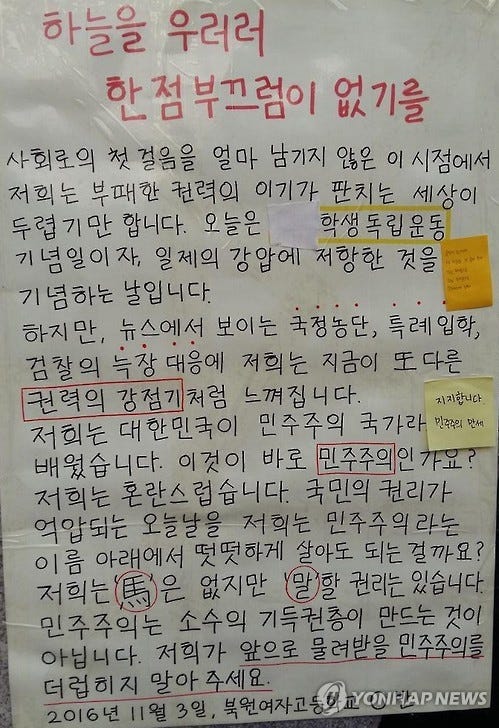 하늘을 우러러
한 점 부끄럼이 없기를
사회로의 첫 걸음을 얼마 남기지 않은 이 시점에서
저희는 부패한 권력의 이기가 판치는 세상이
두렵기만 합니다. 오늘은 학생독립운동
기념일이자, 일제의 강압에 저항한 것을
기념하는 날입니다.
하지만, 뉴스에서 보이는 국정농단, 특례입학,
검찰의 늑장 대응에 저희는 지금이 또 다른
권력의 강점기처럼 느껴집니다.
지지합니다
민주주의 만세
저희는 대한민국이 민주주의 국가라
배웠습니다. 이것이 바로 민주주의인가요?
저희는 혼란스럽습니다. 국민의 권리가
억압되는 오늘날을 저희는 민주주의라는
이름 아래에서 떳떳하게 살아도 되는걸까요?
저희는 '馬'은 없지만 '말'할 권리는 있습니다.
민주주의는 소수의 기득권층이 만드는 것이
아닙니다. 저희가 앞으로 물려받을 민주주의를
더럽히지 말아 주세요.
2016년 11월 3일, 북원여자고등학교
YONHAP NEWS